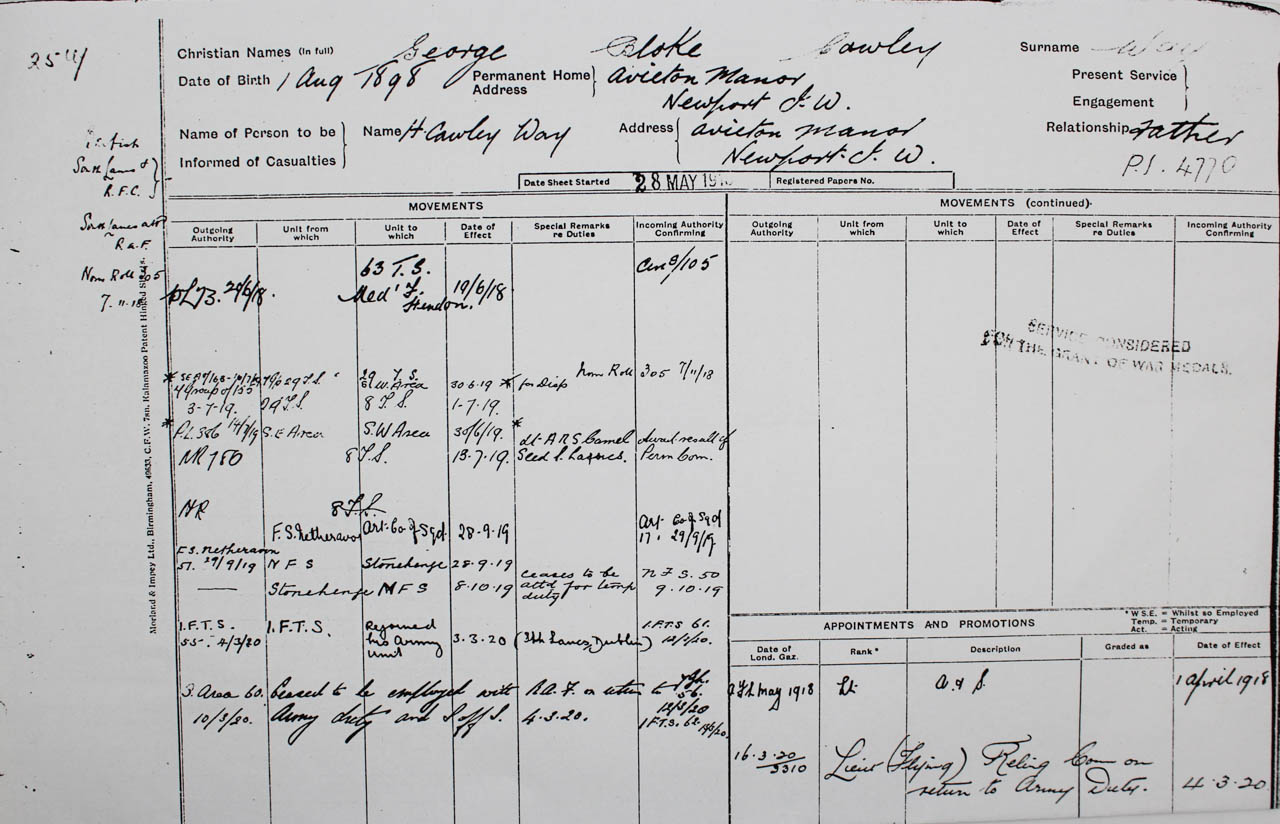 25W/
Christian Names (In full) George Bloke Cawley Surname Way
Date of Birth 1 Aug 1898 Permanent Home Address Avicton Manor
Newport I.W.
Present Service
Engagement
Name of Person to be Informed of Casualties Name H Cawley Way Address Avicton Manor
Newport. I. W.
Relationship Father
P.I. 4770
South Lancs
R.F.C.
South Lancs att
R.A.F.
Nom Roll 305
7.11.18
Date Sheet Started 28 MAY 191 Registered Papers No.
MOVEMENTS
Outgoing Authority Unit from which Unit to which Date of Effect Special Remarks re Duties Incoming Authority Confirming
63 T.S. Cas 9/105
DL73. 29/6/18. Med' F. Hendon. 19/6/18
29 T.S.
S.W. Area 30.6.19 * for Disp Nom Roll 305 7/11/18
4 Group of 155
3-7-19. 29 T.S. 8 T.S. 1-7-19.
* P.L. 386 14/7/19 S.E Area S.W Area 30/6/19. *
MR 780 8 T.S. 13.7.19. Perm Com.
NR 8 T.S.
F.S. Netheravon Art. Co of Sqd 28-9-19 Art Co of Sqd
17. 29/9/19
F.S. Netheravon
57. 29/9/19 N F S Stonehenge 28.9.19
Stonehenge N F S 8.10.19 ceases to be attd for temp duty N F S. 50
9.10.19
1.F.T.S.
55. 4/3/20 1.F.T.S. Rejoined his Army Unit 3.3.20 (3th Lancs, Dublin) 1.F.T.S 61.
12/3/20.
S. Area 60. Ceased to be employed with R.A.F. on return to
10/3/20. Army duty and S off S. 4.3.20. 12/3/20
1 F.T.S. 62.
MOVEMENTS (continued).
Outgoing Authority Unit from which Unit to which Date of Effect Special Remarks re Duties Incoming Authority Confirming
SERVICE CONSIDERED
FOR THE GRANT OF WAR MEDALS.
* W.S.E. = Whilst so Employed
Temp. = Temporary
Act. = Acting
APPOINTMENTS AND PROMOTIONS
Date of Lond. Gaz. Rank * Description Graded as Date of Effect
May 1918 Lt. A & S. 1 April 1918
16.3.20
3310 Lieut (Flying) Relinq Com on
return to Army Duty. 4.3.20
Morland & Impey Ltd., Birmingham, 49633, C.F.W. 78n. Kalamazoo Patent Hinged Sheets.